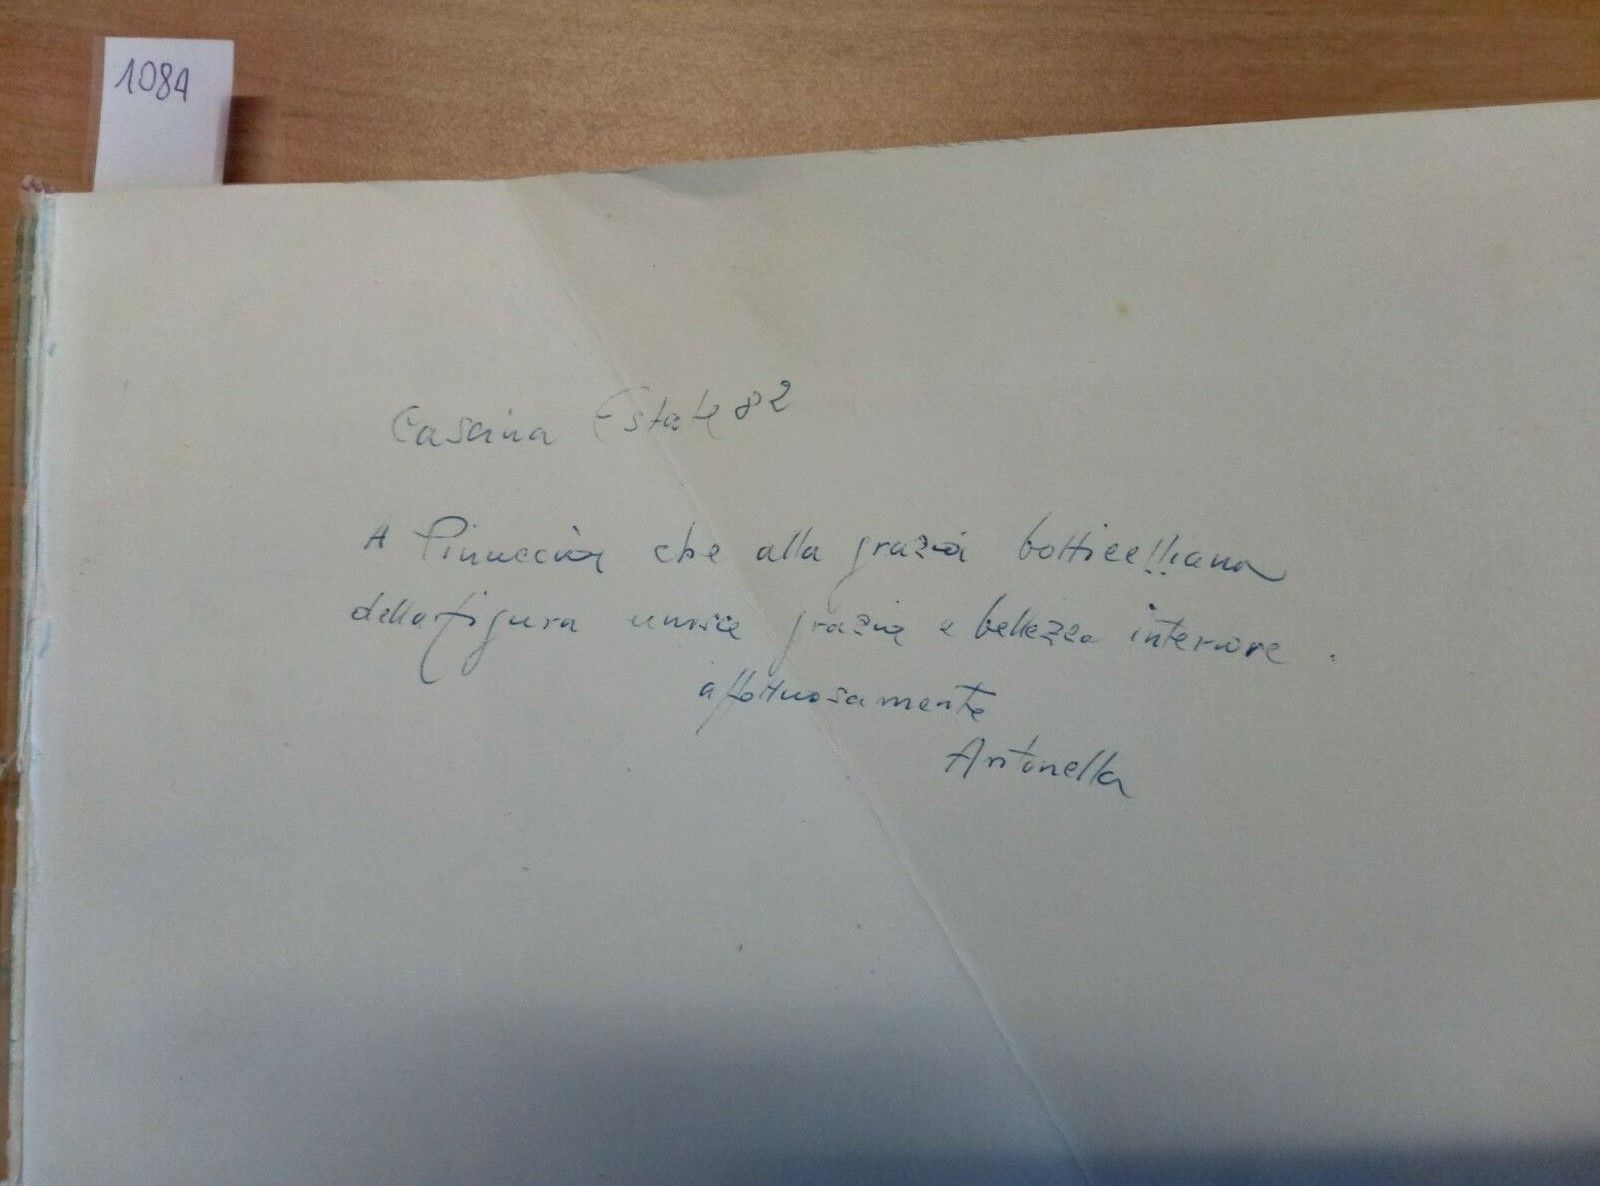 1084
Cascina Estate 82
A Pinuccia che alla grazia botticelliana
della figura unisce grazia e bellezza interiore.
affettuosamente
Antonella